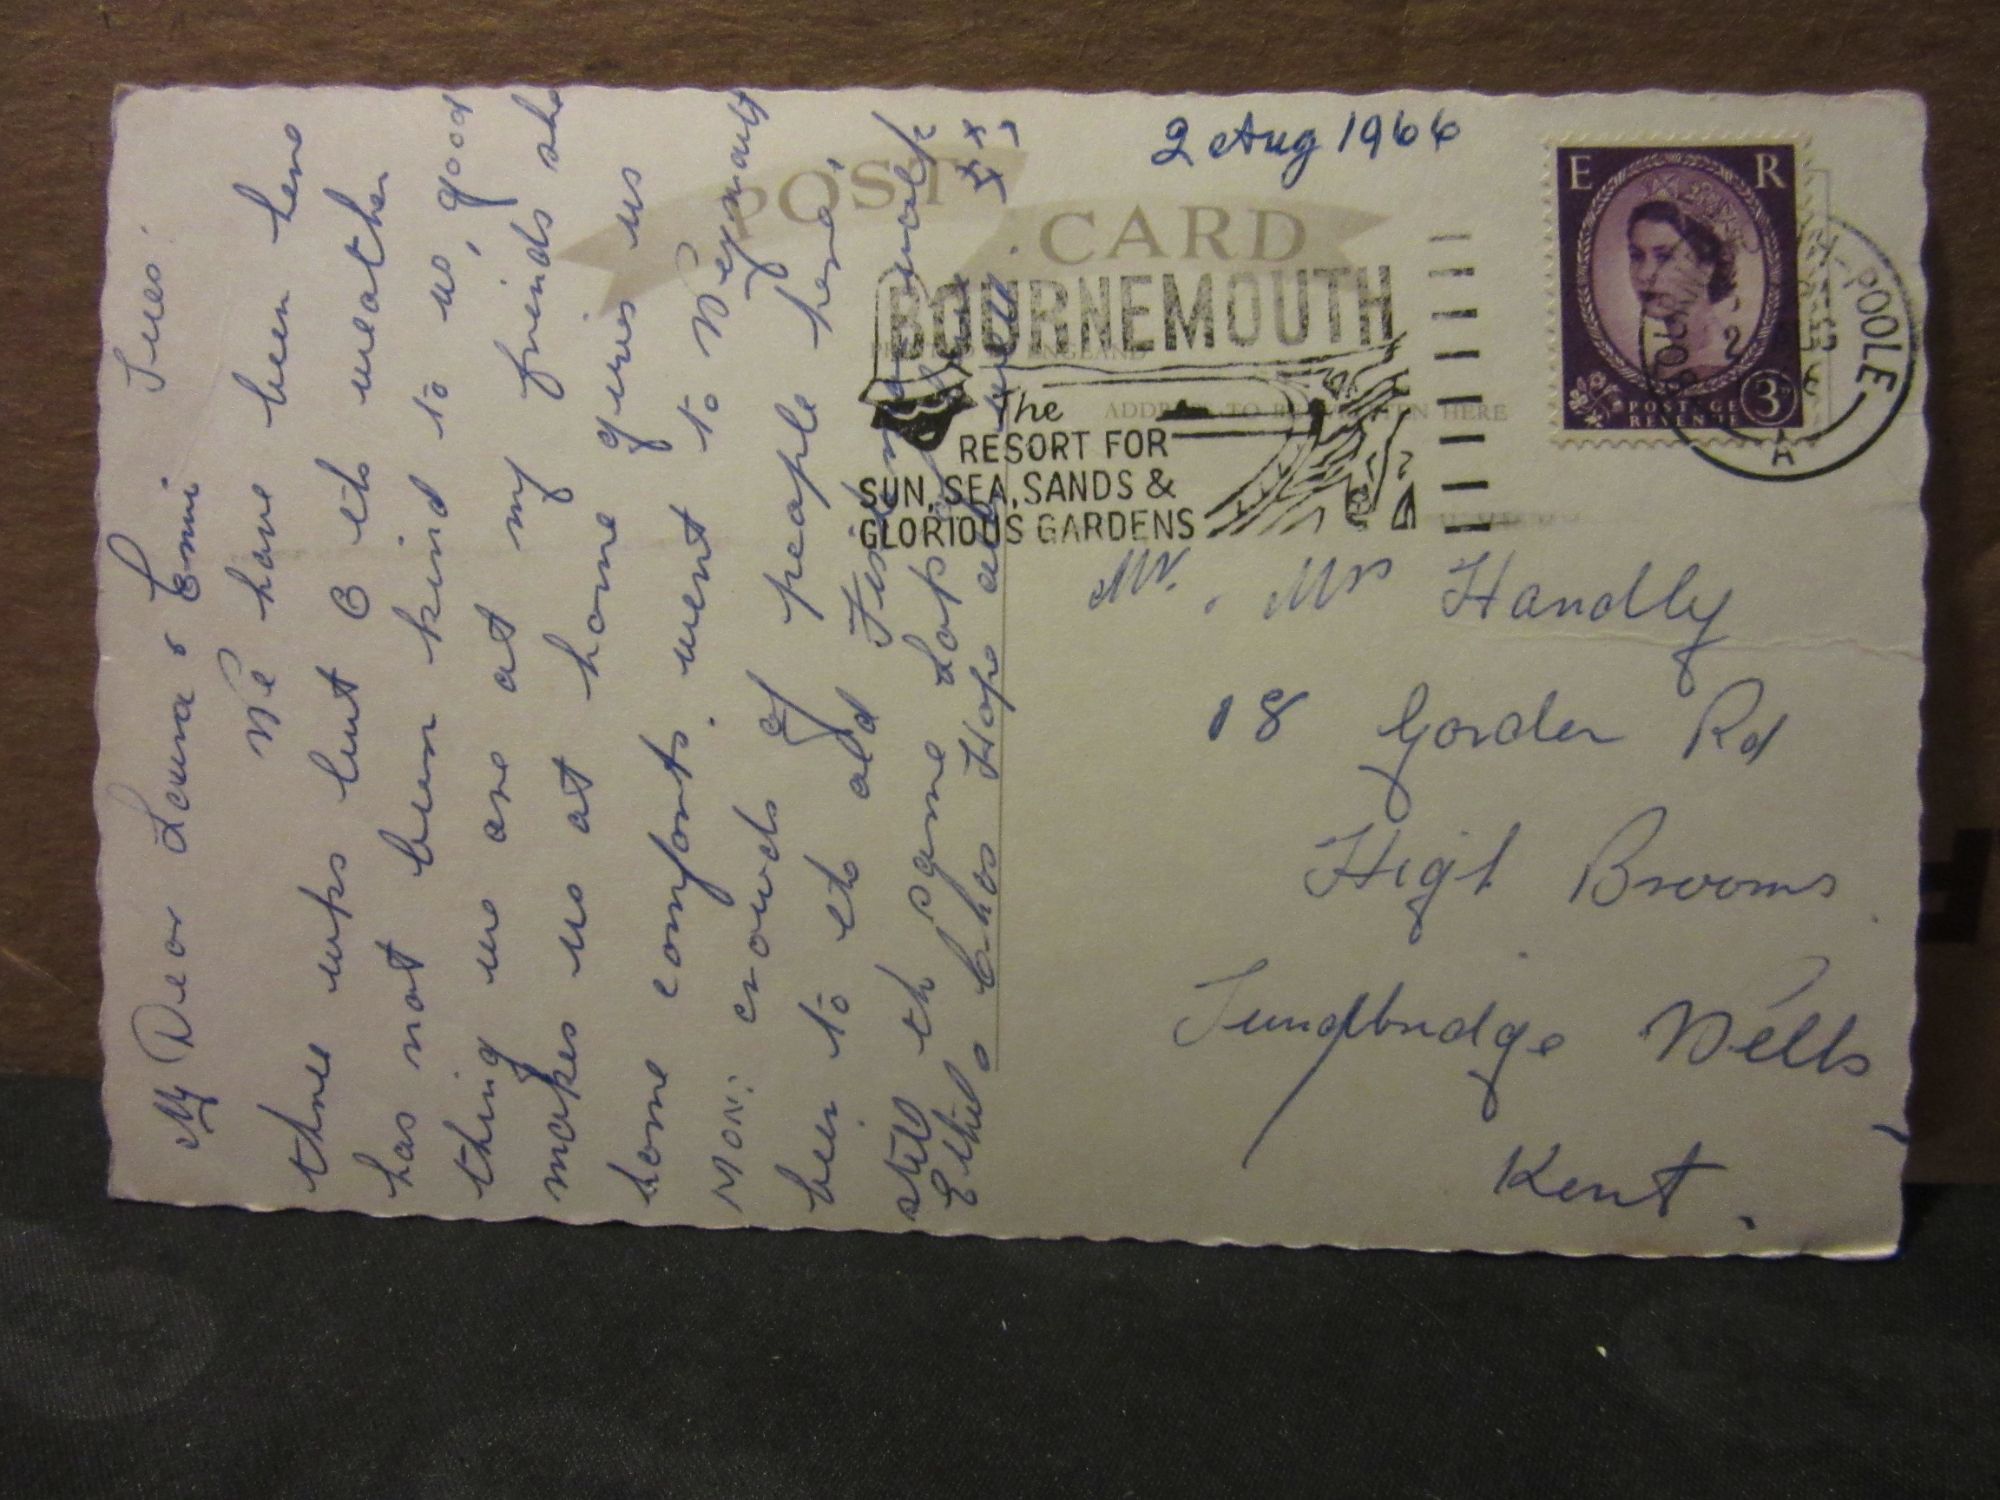 My Dear Laura & Erni Tues:
We have been here
three wks but O the weather
has not been kind to us, good
thing we are at my friends she
makes us at home gives us
home comforts. went to Weymouth
MON: crowds of people have
been to the old
still the same
Ethel Hope all well
xx
xx
POST CARD
2 Aug 1966
BOURNEMOUTH
The
RESORT FOR
SUN, SEA, SANDS &
GLORIOUS GARDENS
ADDRESS TO BE WRITTEN HERE
E R
POSTAGE
REVENUE
3D
BOURNEMOUTH-POOLE
A
Mr. Mrs Handly
18 Gorden Rd
High Brooms
Tundbridge Wells
Kent.